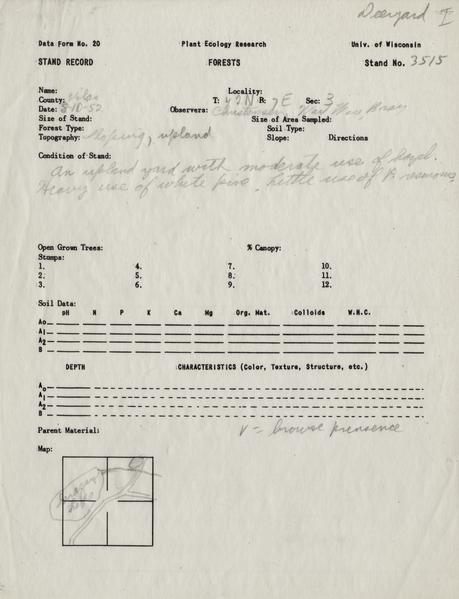 Deeryard I
Data Form No. 20 Plant Ecology Research Univ. of Wisconsin
STAND RECORD FORESTS Stand No. 3515
Name: Locality:
County: Vilas T: 42N R: 7E Sec: 3
Date: 8-10-52 Observers: Christensen,
Size of Stand: Size of Area Sampled:
Forest Type: Soil Type:
Topography: Sloping, upland Slope: Directions
Condition of Stand:
An upland yard with moderate use of hazel.
Heavy use of white pine. Little use of P. resinosa.
Open Grown Trees: % Canopy:
Stumps:
1. 4. 7. 10.
2. 5. 8. 11.
3. 6. 9. 12.
Soil Data:
pH N P K Ca Mg Org. Mat. Colloids W.H.C.
Ao
A1
A2
B
DEPTH CHARACTERISTICS (Color, Texture, Structure, etc.)
Ao
A1
A2
B
Parent Material: V = browse prensence
Map:
Lake